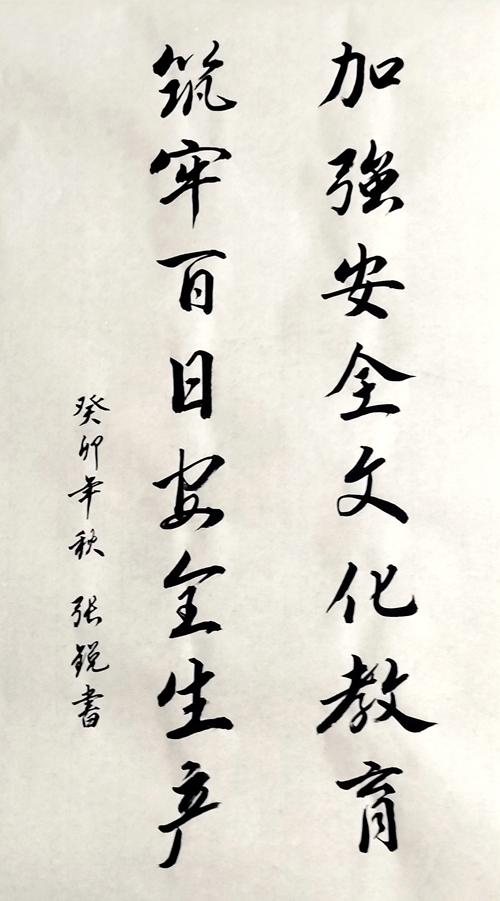 加強安全文化教育
筑牢百日安全生产
癸卯年秋 张锐書